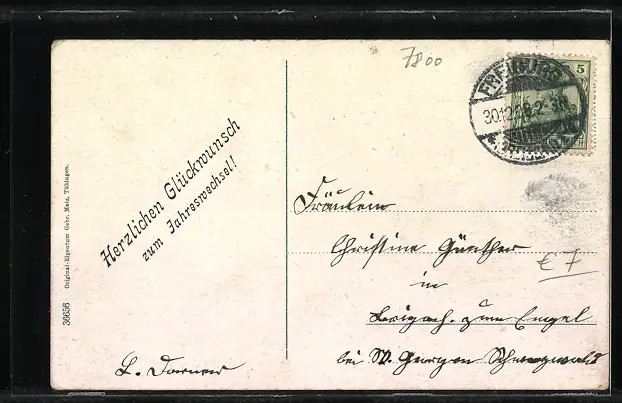 7800
5
FREIBURG
30.12.
Herzlichen Glückwunsch
zum Jahreswechsel!
Original-Eigentum Gebr. Metz, Tübingen.
38656
Fräulein
Christine Günther
in
Brigach. zum Engel
bei St. Georgen Schwarzwald
€7